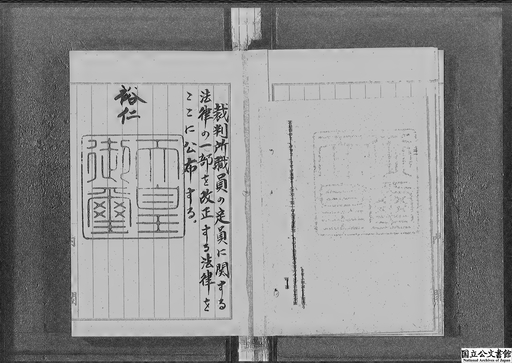 裁判所職員の定員に関する
法律の一部を改正する法律を
ここに公布する。
裕仁
天皇
御璽
国立公文書館
National Archives of Japan